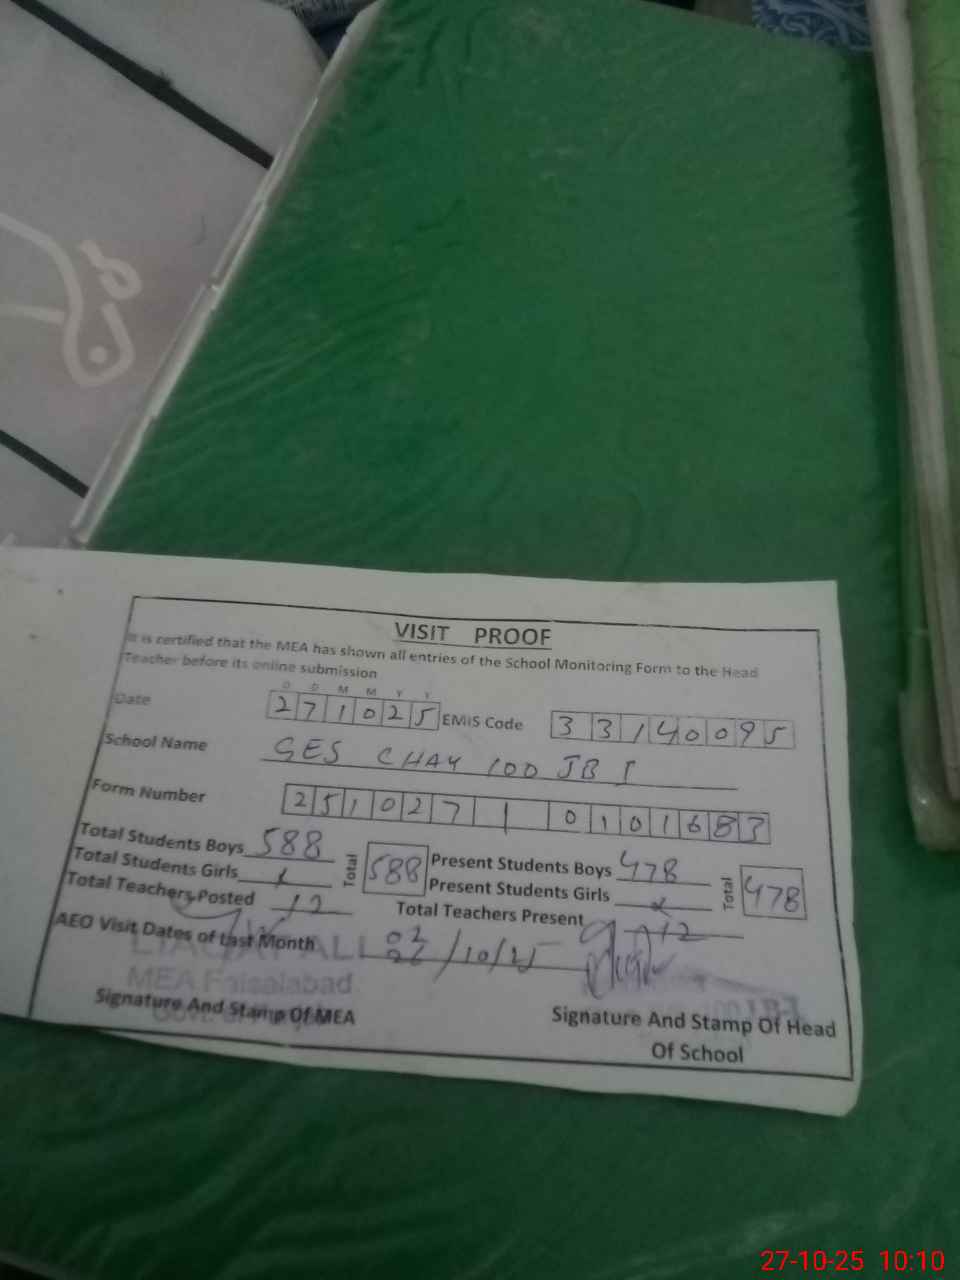 VISIT PROOF
It is certified that the MEA has shown all entries of the School Monitoring Form to the Head
Teacher before its online submission
D D M M Y Y
Date 271025 EMIS Code 33140095
School Name GES CHAK 100 JB I
Form Number 251027 1 0101683
Total Students Boys 588 Total 588 Present Students Boys 478 Total 478
Total Students Girls x Present Students Girls x
Total Teachers Posted 12 Total Teachers Present 12
AEO Visit Dates of Last Month 02 /10/25
LIAQAT ALI
MEA Faisalabad
Signature And Stamp Of MEA
Signature And Stamp Of Head
Of School
27-10-25 10:10